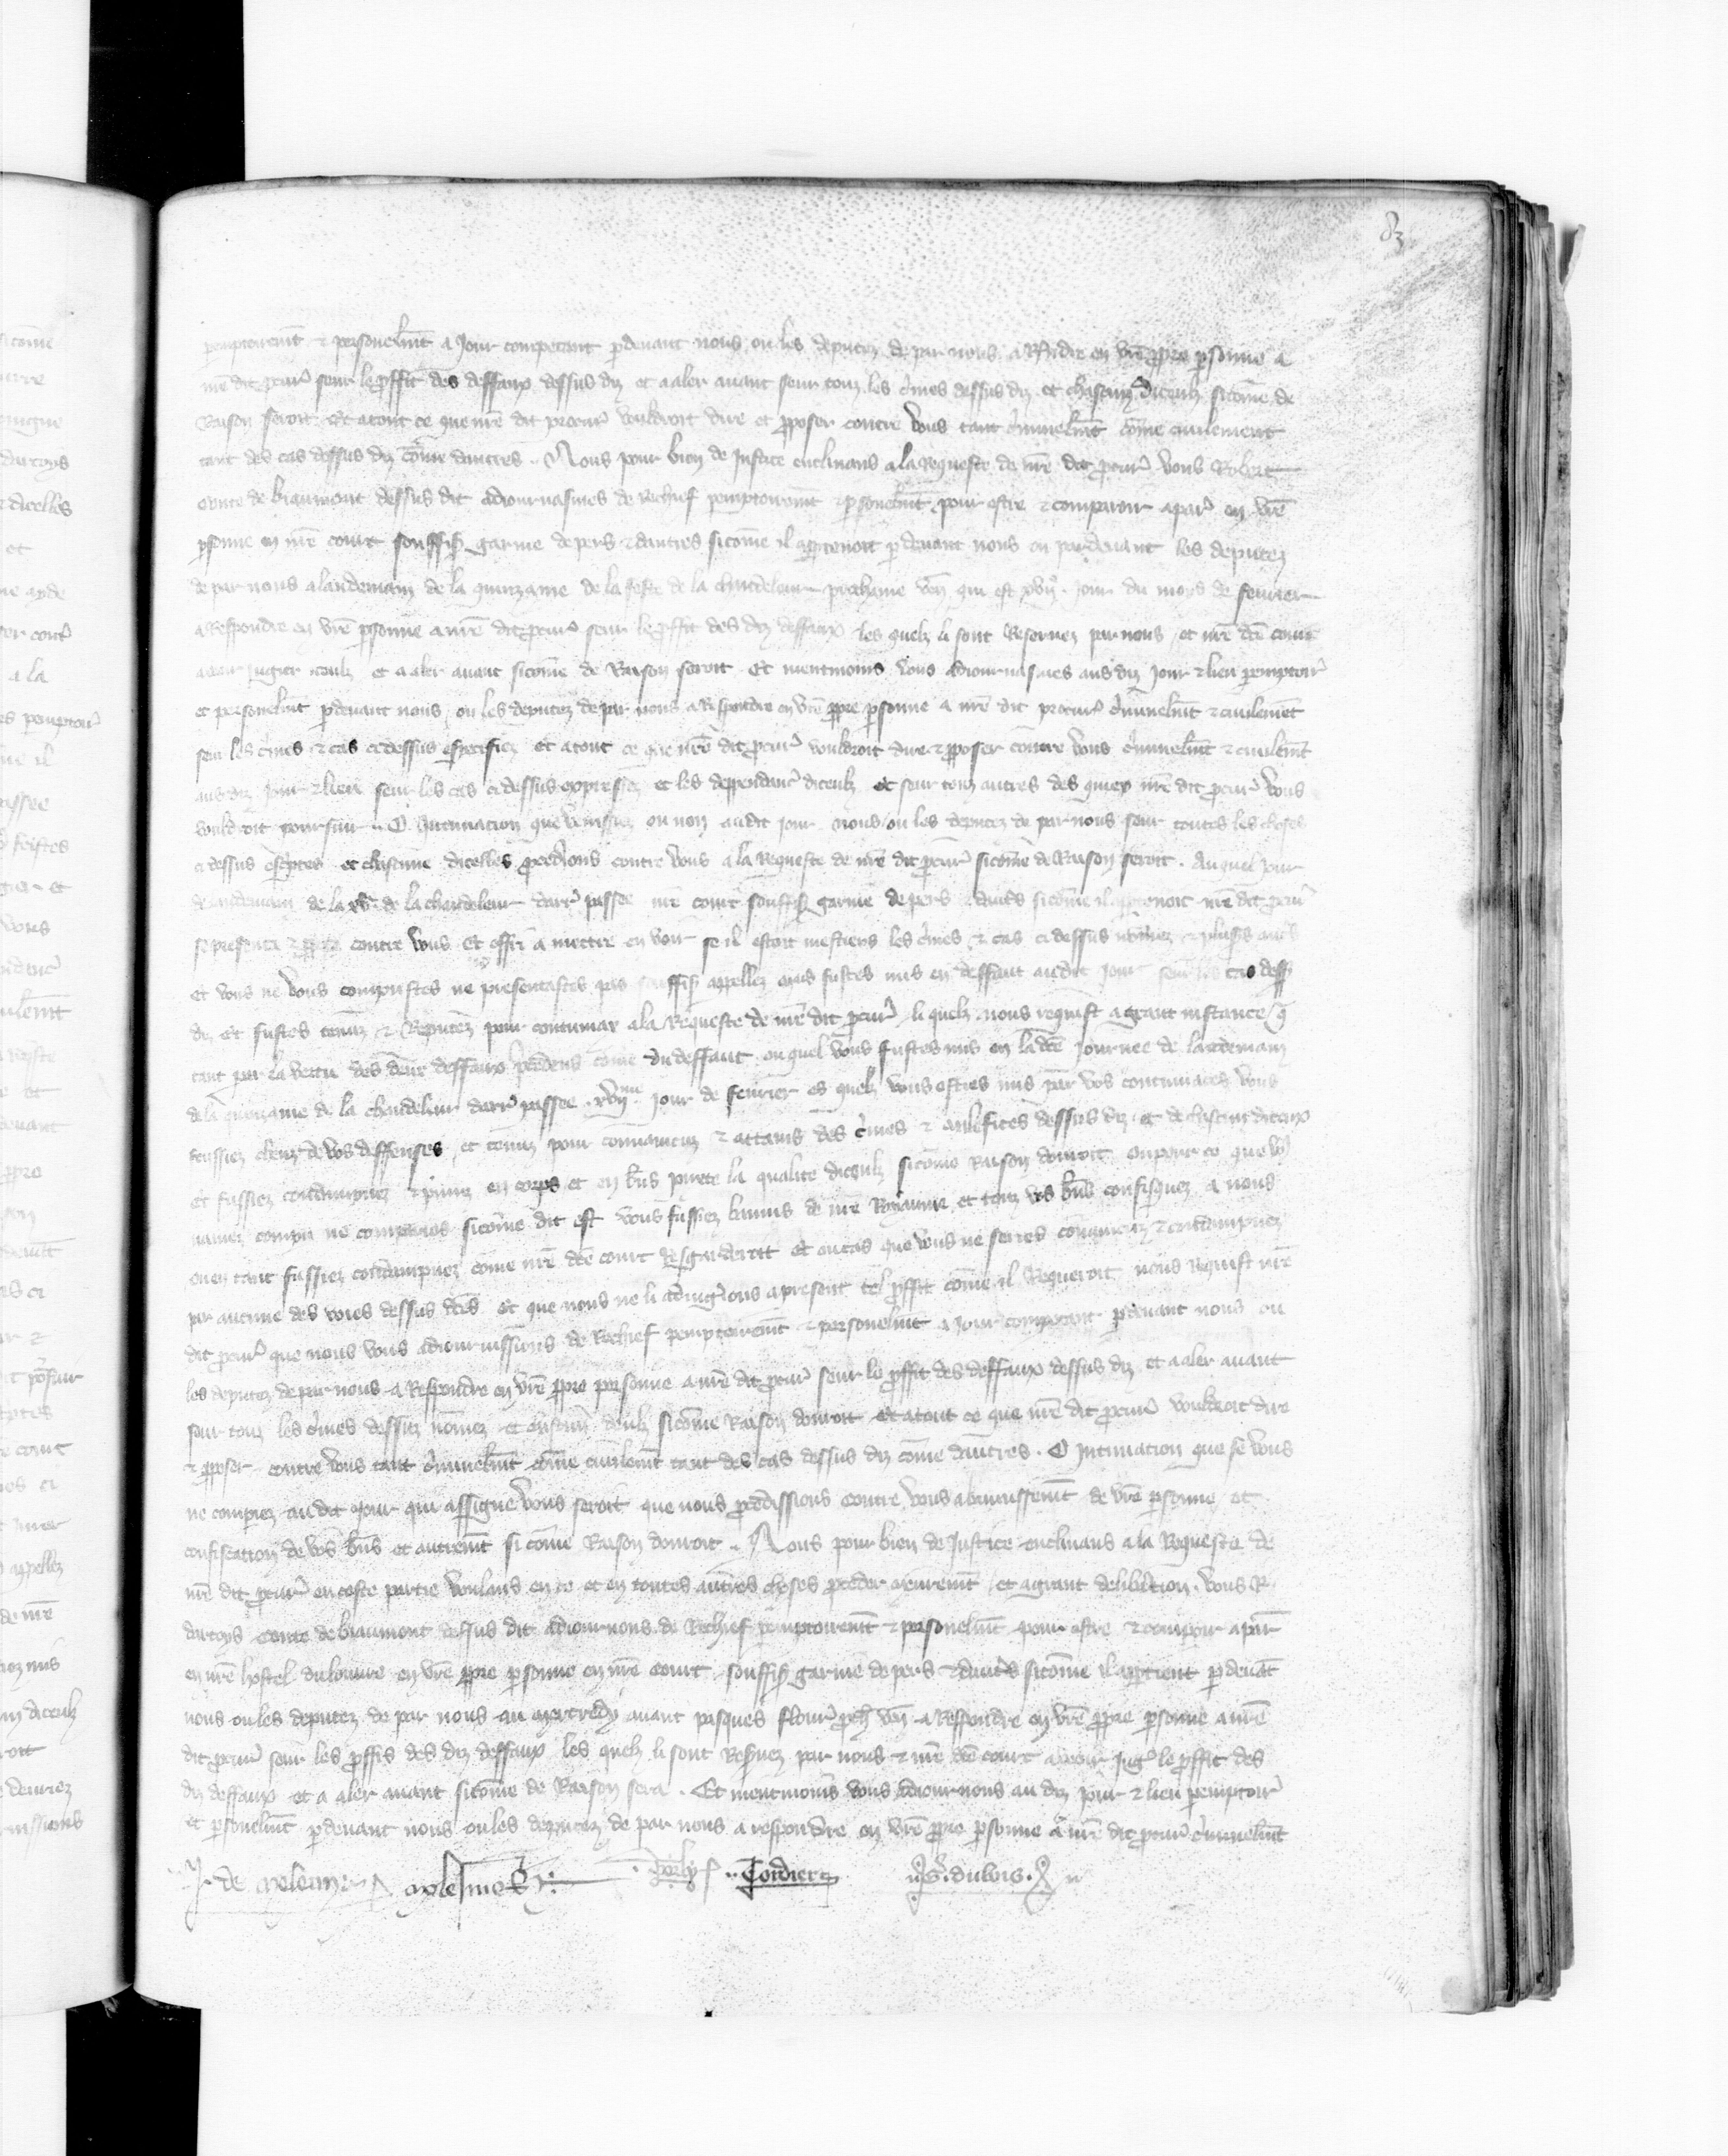 83
peremptoiremt & personelmt a Jour competent pdevant nous ou les deputez de par nous a Respondre en vre ppre psonne a
nre dit pcur seur le pffit des deffaux dessus diz et a aler avant seur touz les cimes dessus diz et chascun diceulz sicome de
Raison seroit Et a tout ce que nre dit procur vouldroit dire et pposer contre vous tant ciminelmt come civilement
tant des cas dessus diz come dautres . Nous pour bien de Justice enclinans a la Requeste de nre dit pcur vous Robert
conte de biaumont dessus dit adiournasmes de Rechief pemptoiremt & psonelmt pour estre & comparoir a par en vre
psonne en nre court souffis garnie de pers & dautres sicome il appartenoit pdevant nous ou pardevant les deputez
de par nous a lendemain de la quinzaine de la feste de la chandeleur prochaine ven qui est xvij jour du mois de fevrier
a Respondre en vre psonne a nre dit pcur seur le pffit des diz deffaux les quelz li sont Reservez par nous et nre dte court
a voir Jugier iceulz et a aler avant sicome de Raison seroit Et nientmoins vous adiournasmes aus diz Jour & lieu pemptoir
et personelmt pdevant nous ou les deputez de par nous a Respondre en vre ppre psonne a nre dit procur ciminelmt & civilemet
seu les cimes & cas ci dessus especifiez et a tout ce que nre dit pcur vouldroit dire & pposer contre vous ciminelmt & civilemt
aus diz Jour & lieu seur les cas ci dessus expressez et les dependanc diceulz et seur touz autres des quiex nre dit pcur vous
vouldroit poursuir . O Intimation que venissiez ou non audit jour nous ou les deputez de par nous seur toutes les choses
ci dessus esciptes et chascune dicelles pcedions contre vous a la Requeste de nre dit pcur sicome de Raison seroit . Au quel jour
de lendemain de la xve de la chandeleur darr passee nre court souffis garnie de pers & dautres sicome il appartenoit nre dit pcur
se presenta contre vous Et offri a mettre en voir se il estoit mestiers les cimes & cas ci dessus nomez & plusrs autrs
et vous ne vous comparustes ne presentastes pas souffis appellez mais fustes mis en deffaut audit jour seur les cas dess
diz et fustes tenuz & Reputez pour contumax a la Requeste de nre dit pcur li quelz nous requist a grant instance q
tant par la vertu des deux deffaux pcedens come du deffaut ou quel vous fustes mis en la dte Journee de landemain
de la quinzaine de la chandeleur darr passee xvijme jour de fevrier es quelz vous estes mis par vos contumaces vous
feussiez cheuz de vos deffenses et tenuz pour convaincuz & attains des cimes & malefices dessus diz et de chascun diceux
et fussiez condampnez & puniz en corps et en biens pmete la qualite diceulz sicome Raison donroit ou pour ce que vous
naviez compu ne comparies sicome dit est vous fussiez baniz de nre Royaume et touz vos biens confisquez a nous
ou en tant fussiez condampnez come nre dte court Resgarderoit et ou cas que vous ne series convaincuz & condampnez
par aucune des voies dessus dtes et que nous ne li adiugerions a present tel pffit come il Requeroit nous Requist nre
dit pcur que nous vous adiournissions de Rechief pemptoiremt & personelmt a jour competent pdevant nous ou
les deputez de par nous a Respondre en vre ppre personne a nre dit pcur seur le pffit des deffaux dessus diz et a aler avant
seur touz les cimes dessus nomez et chascun deulz sicome Raison donroit et a tout ce que nre dit pcur vouldroit dire
& pposer contre vous tant ciminelmt come civilemt tant des cas dessus diz come dautres . O Intimation que se vous
ne compiez au dit jour qui assigne vous seroit que nous pcedissions contre vous a banissemt de vre psonne et
confiscation de vos biens et autremt si come Raison donroit . Nous pour bien de Justice enclinans a la Requeste de
nre dit pcur en ceste partie voulans en ce et en toutes autres choses pceder meuremt et a grant delibation vous R.
dartoys conte de biaumont dessus dit adiournons de Rechief pemptoiremt & personelmt pour estre & compoir a par
en nre hostel du louvre en vre ppre personne en nre court souffis garnie de pers & dautrs sicome il appartient pdevat
nous ou les deputez de par nous au mercredy avant pasques flouries proch ven a Respondre en vre ppre psonne a nre
dit pcur seur les pffis des diz deffaux les quelz li sont Reservez par nous & nre dte court a veoir Jug le pffit des
diz deffaux et a aler avant sicome de Raison sera . Et nientmoins vous adiournons au diz jour & lieu pemptoir
et psonelmt pdevant nous ou les deputez de par nous a respondre en vre ppre psonne a nre dit pcur ciminelmt
Cordier G. dubois